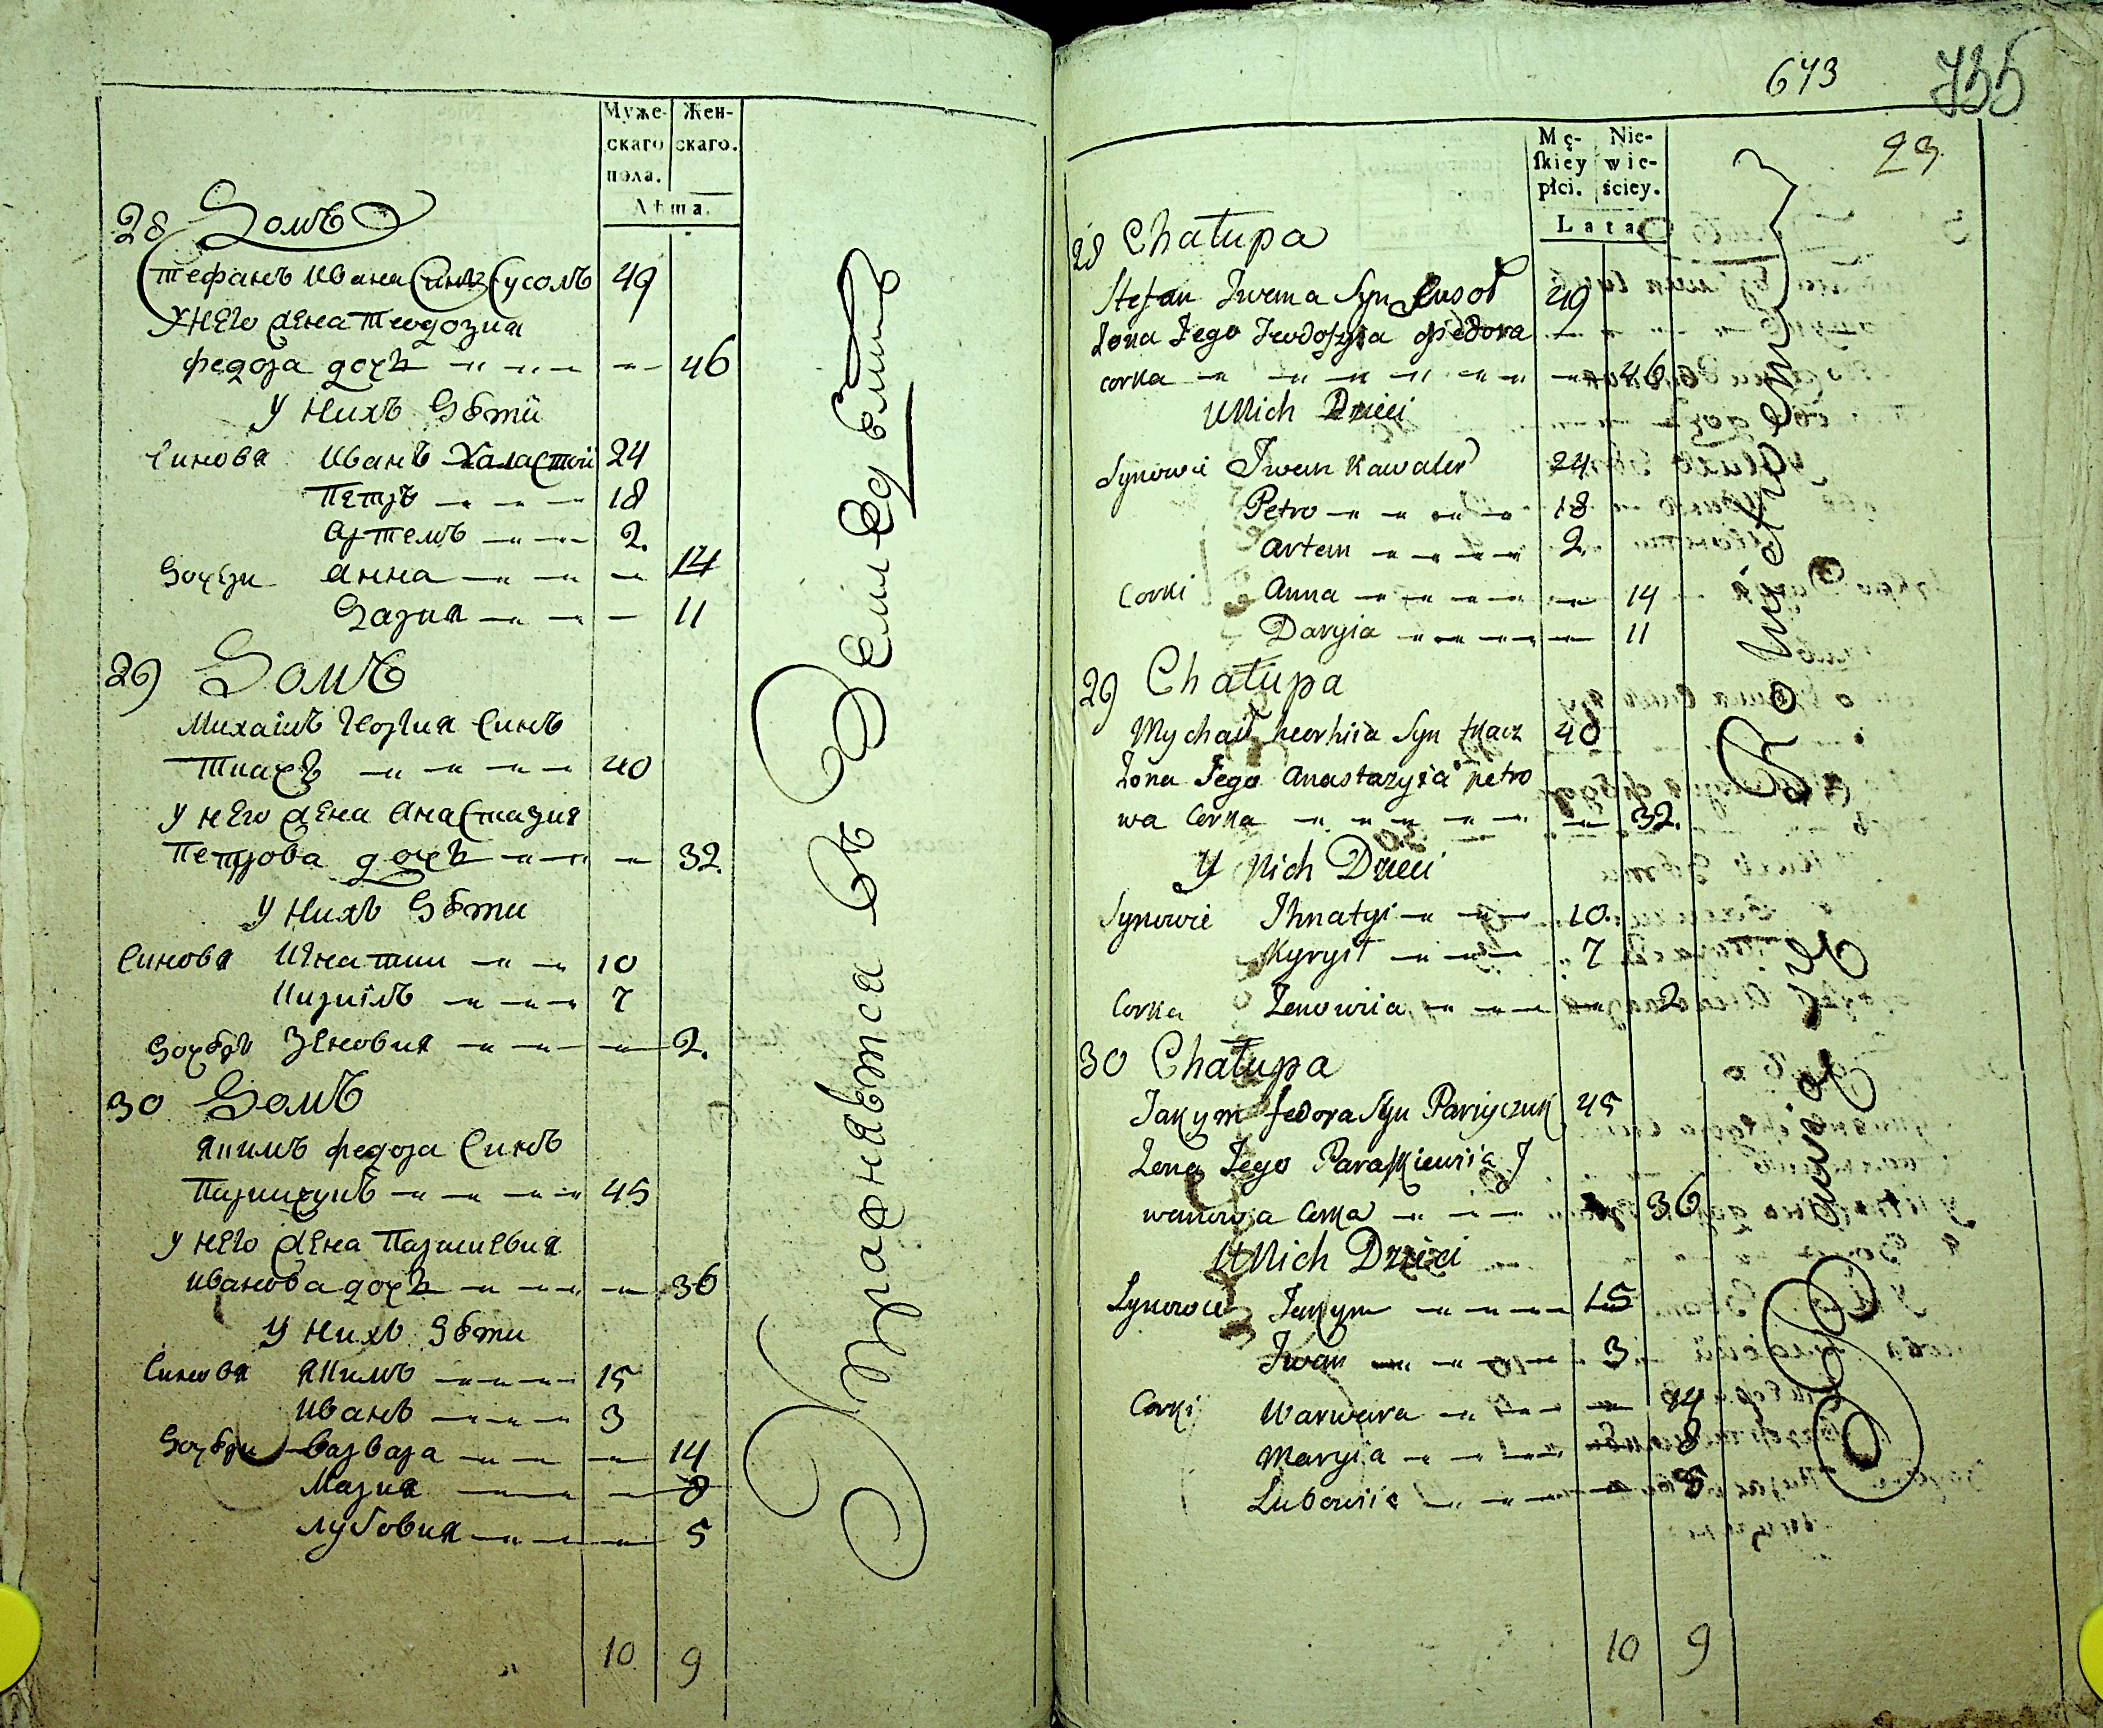 Муже-
скаго
пола.
Жен-
скаго.
Лѣта.
28 Домъ
Стефанъ Ивана Синъ Сусолъ 49
У него жена Теодозия
Федора дочь 46
У нихъ Дѣти
Синовя Иванъ Халастой 24
Петръ 18
Артемъ 2.
Дочери Анна 14
Дария 11
29 Домъ
Михаилъ Георгия Синъ
Ткачъ 40
У него жена Анастазия
Петрова дочь 32.
У нихъ Дѣти
Синовя Игнатии 10
Кирилъ 7
Дочѣрь Зеновия 2.
30 Домъ
Якимъ Федора Синъ
Паричукъ 45
У него жена Параскевия
Иванова дочь 36
У нихъ Дѣти
Синовя Якимъ 15
Иванъ 3
Дочѣри Варвара 14
Мария 8
Лубовия 5
10 9
Упражняются въ Земледѣлии
673
735
23.
Mę-
ſkiey
płci.
Nie-
wie-
ściey.
Lata
28 Chałupa
Stefan Iwana Syn Susoł 49
Zona Jego Teodozyia Fiedora
corka 46
U Nich Dzieci
Synowie Iwan Kawaler 24
Petro 18
Artem 2
Corki Anna 14
Daryia 11
29 Chałupa
Mychaił heorhiia Syn tkacz 40
Zona Jego Anastazyia petro
wa Corka 32.
U Nich Dzieci
Synowie Ihnatyi 10.
Kyryłł 7
Corka Zenowiia 2
30 Chałupa
Jakym fedora Syn Paryczuk 45
Zona Jego Paraskiewiia J
wanowa Corka 36
U Nich Dzieci
Synowie Jakym 15
Iwan 3
Corki Warwara 14
Maryia 8
Lubowiia 5
10 9